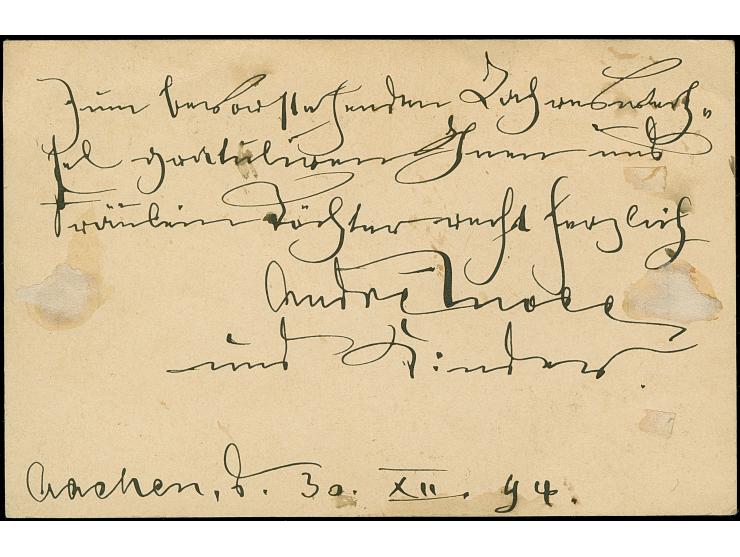 Zum bevorstehenden Jahreswech„
sel gratuliren Ihnen und
Fräulein Töchter recht herzlich
André
und Kinder.
Aachen, d. 30. XII. 94.